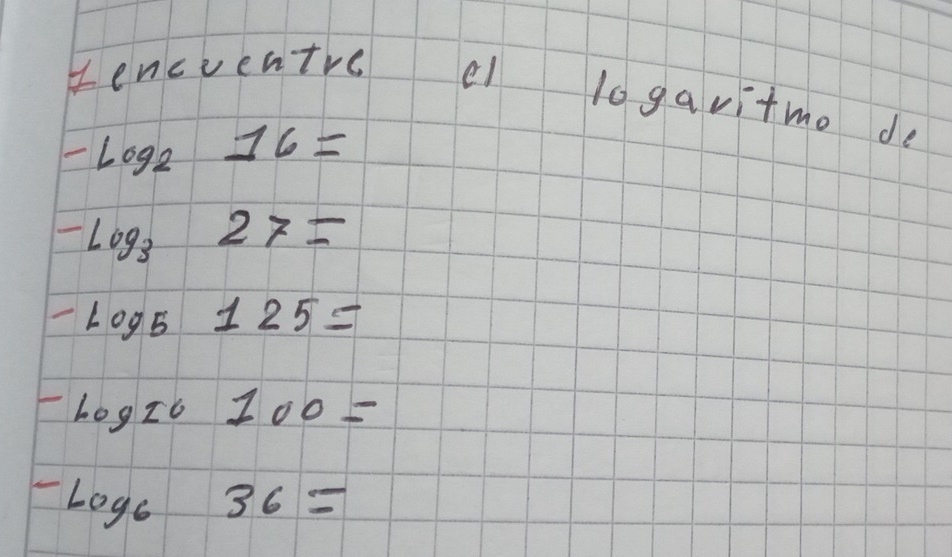 1 encuentre el logaritmo de
- Log₂ 16 =
- Log₃ 27 =
- Log₅ 125 =
- Log₁₀ 100 =
- Log₆ 36 =